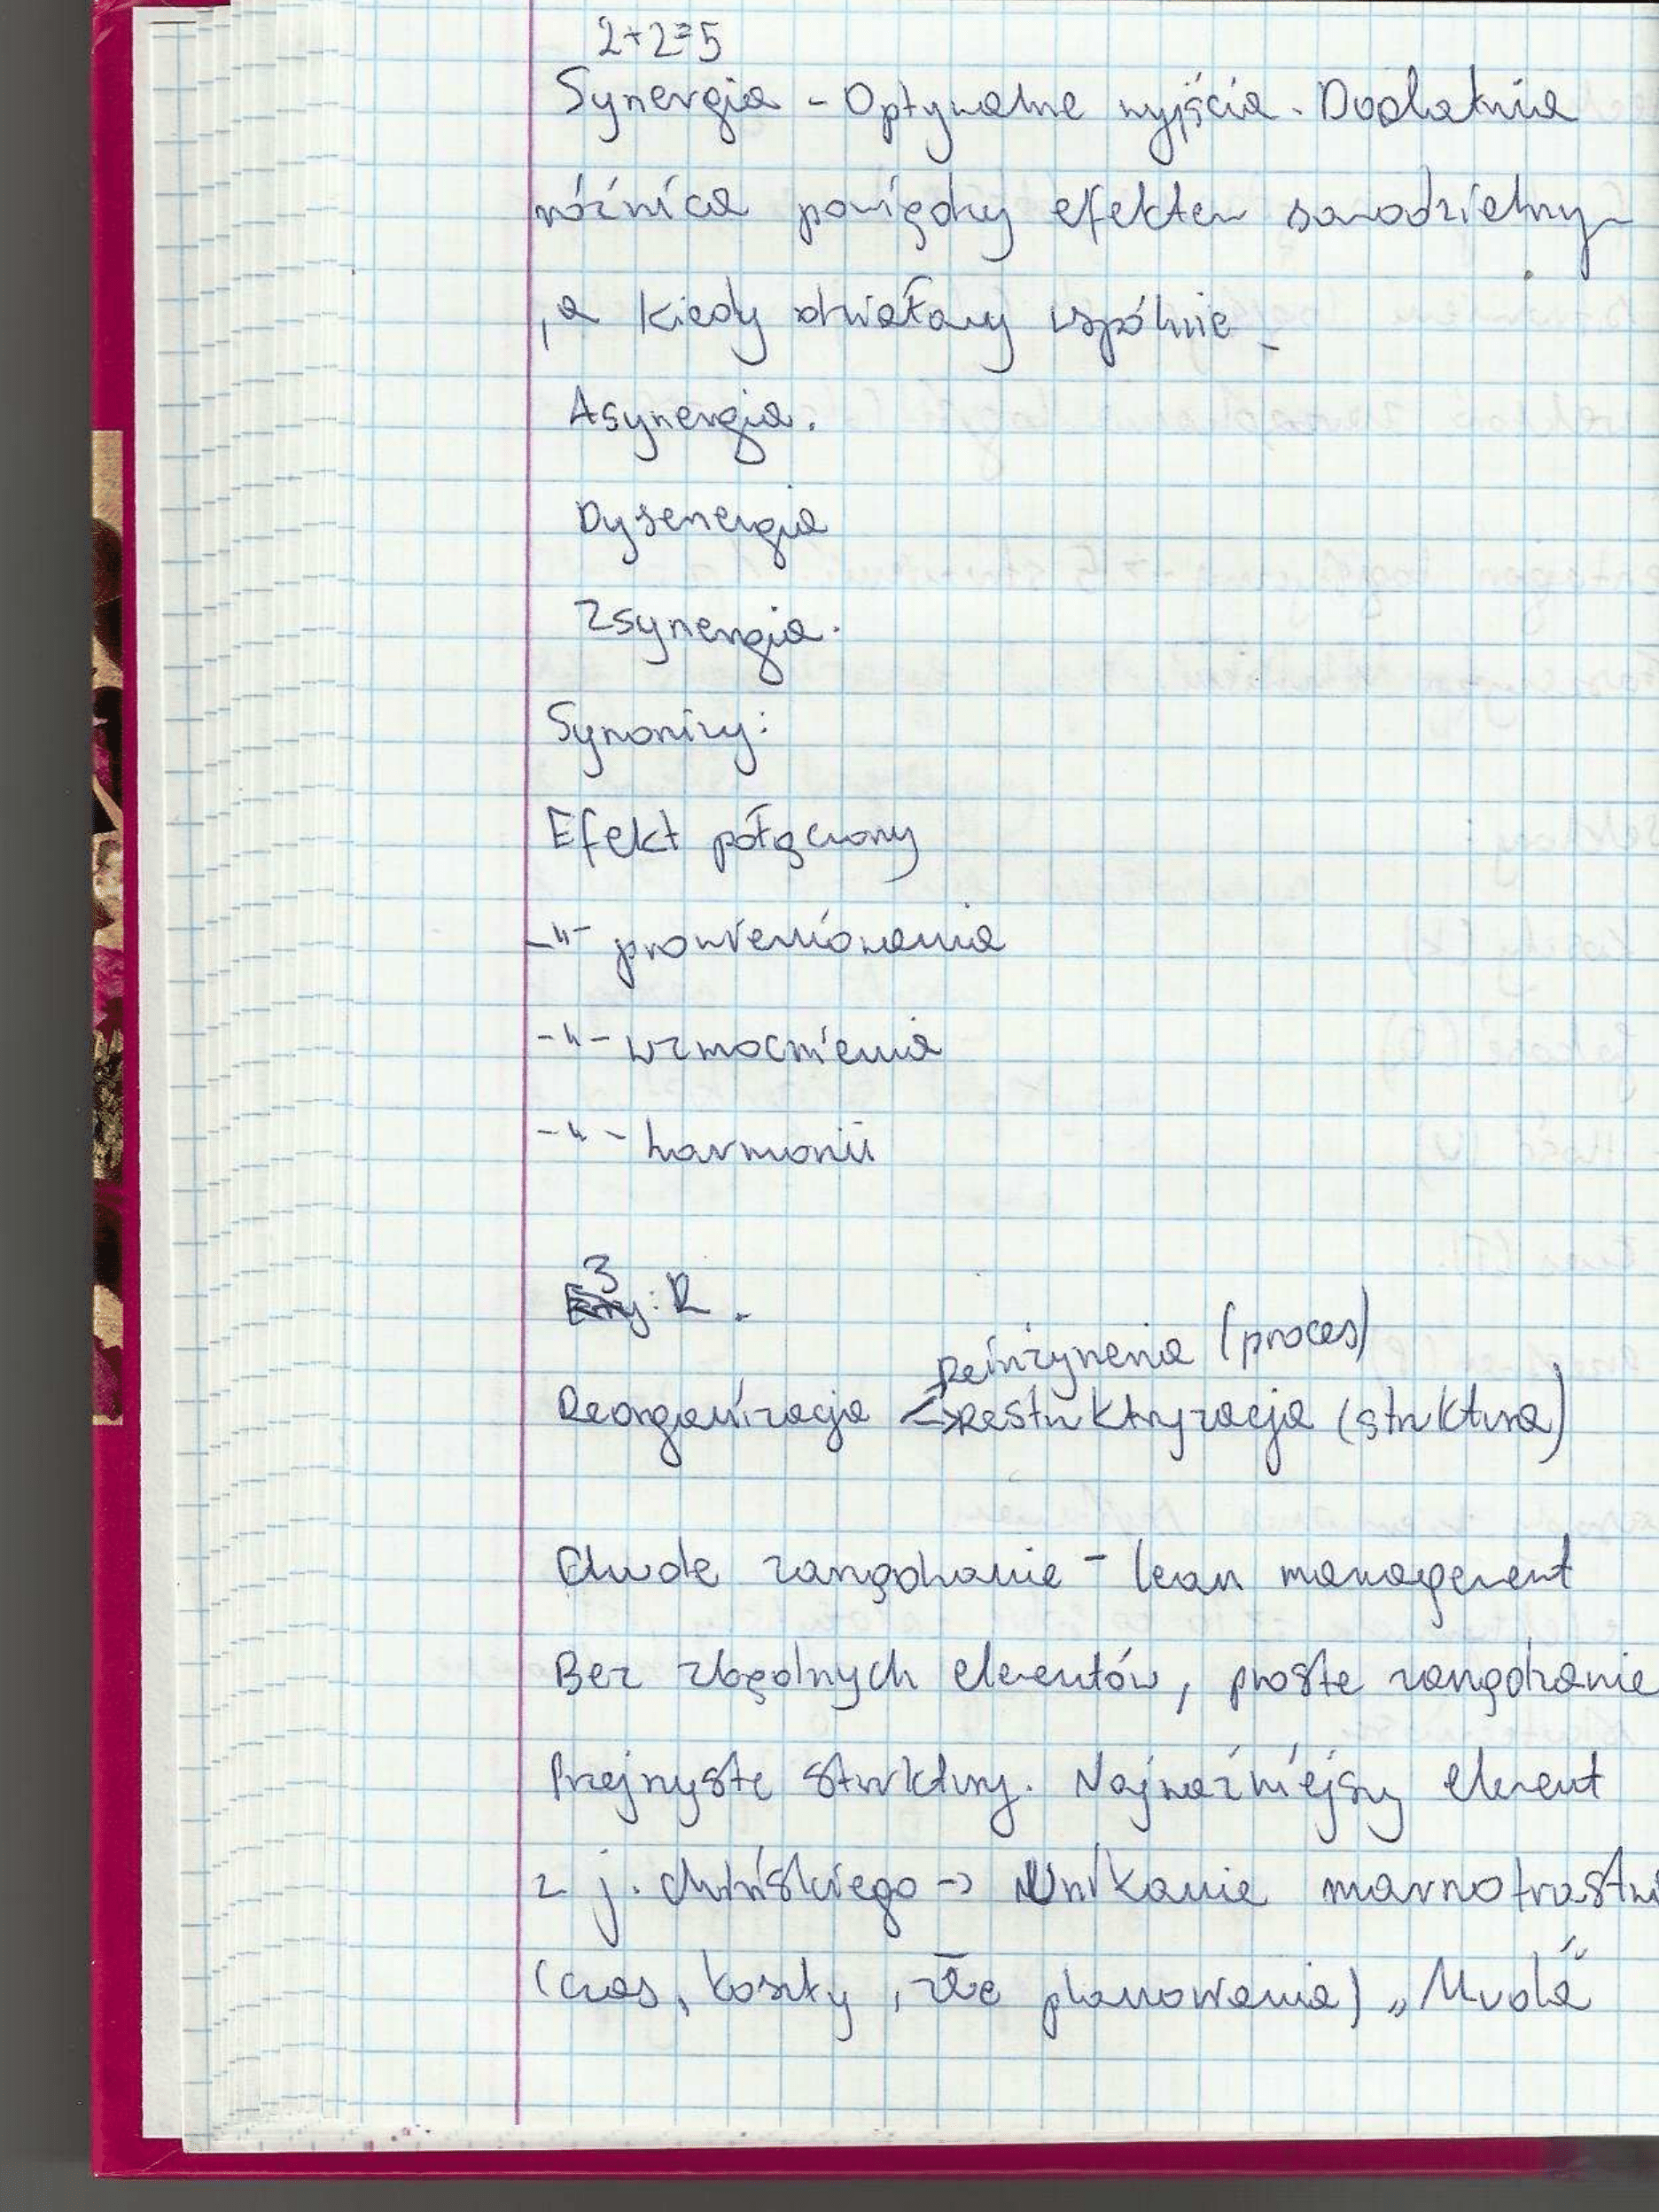 2+2=5
Synergia - Optymalne wyjścia. Dodatnia
różnica pomiędzy efektem samodzielnym
, a kiedy działamy wspólnie.
Asynergia.
Dysenergia
Zsynergia.
Synonimy:
Efekt połączony
-"- promieniowania
-"- wzmocnienia
-"- harmonii
3
: R.
Reinżynieria (proces)
Reorganizacja <-> Restruktryzacja (struktura)
Chude zarządzanie - lean management
Bez zbędnych elementów, proste zarządzanie
Przejrzyste struktury. Najważniejszy element
z j. chińskiego -> Unikanie marnotrastw
(czas, koszty, złe planowania) „Muda"